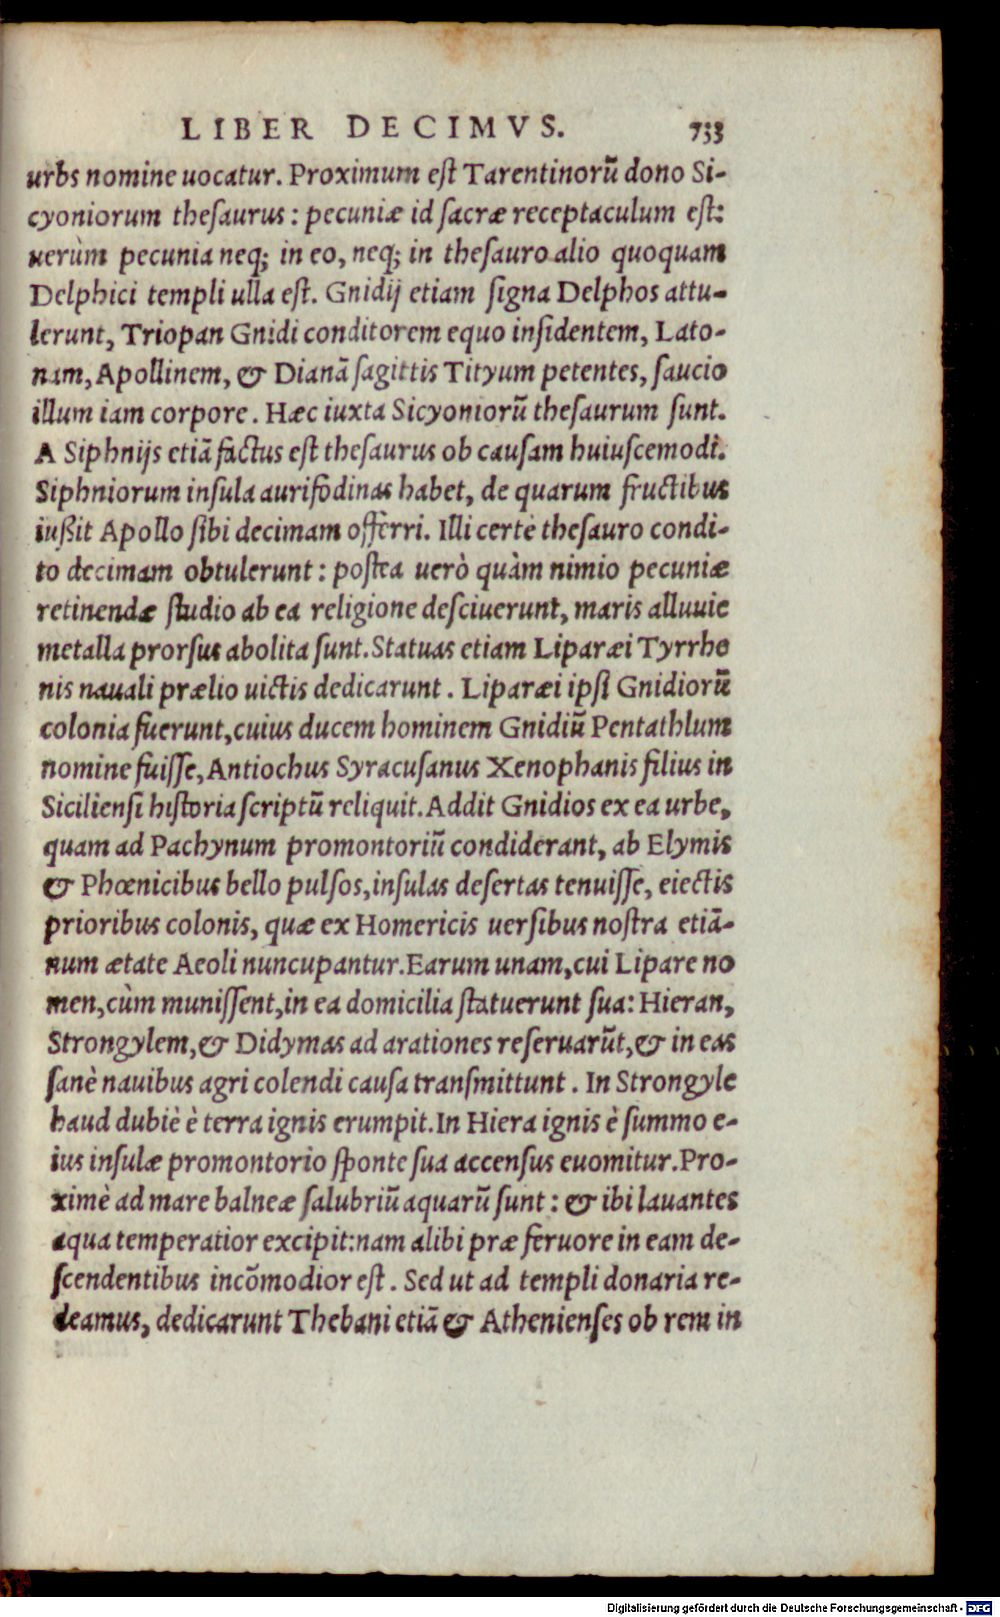 LIBER DECIMVS. 733
urbs nomine uocatur. Proximum est Tarentinorũ dono Si-
cyoniorum thesaurus: pecuniæ id sacræ receptaculum est:
uerùm pecunia neq; in eo, neq; in thesauro alio quoquam
Delphici templi ulla est. Gnidij etiam signa Delphos attu-
lerunt, Triopan Gnidi conditorem equo insidentem, Lato-
nam, Apollinem, & Dianã sagittis Tityum petentes, saucio
illum iam corpore. Hæc iuxta Sicyoniorũ thesaurum sunt.
A Siphnijs etiã factus est thesaurus ob causam huiuscemodi.
Siphniorum insula aurifodinas habet, de quarum fructibus
iußit Apollo sibi decimam offerri. Illi certè thesauro condi-
to decimam obtulerunt: postea uerò quàm nimio pecuniæ
retinendæ studio ab ea religione desciuerunt, maris alluuie
metalla prorsus abolita sunt. Statuas etiam Liparæi Tyrrhe
nis nauali prælio uictis dedicarunt. Liparæi ipsi Gnidiorũ
colonia fuerunt, cuius ducem hominem Gnidiũ Pentathlum
nomine fuisse, Antiochus Syracusanus Xenophanis filius in
Siciliensi historia scriptũ reliquit. Addit Gnidios ex ea urbe,
quam ad Pachynum promontoriũ condiderant, ab Elymis
& Phœnicibus bello pulsos, insulas desertas tenuisse, eiectis
prioribus colonis, quæ ex Homericis uersibus nostra etiã-
num ætate Aeoli nuncupantur. Earum unam, cui Lipare no
men, cùm munissent, in ea domicilia statuerunt sua: Hieran,
Strongylem, & Didymas ad arationes reseruarũt, & in eas
sanè nauibus agri colendi causa transmittunt. In Strongyle
haud dubiè è terra ignis erumpit. In Hiera ignis è summo e-
ius insulæ promontorio sponte sua accensus euomitur. Pro-
ximè ad mare balneæ salubriũ aquarũ sunt: & ibi lauantes
aqua temperatior excipit: nam alibi præ feruore in eam de-
scendentibus incõmodior est. Sed ut ad templi donaria re-
deamus, dedicarunt Thebani etiã & Athenienses ob rem in
Digitalisierung gefördert durch die Deutsche Forschungsgemeinschaft - DFG